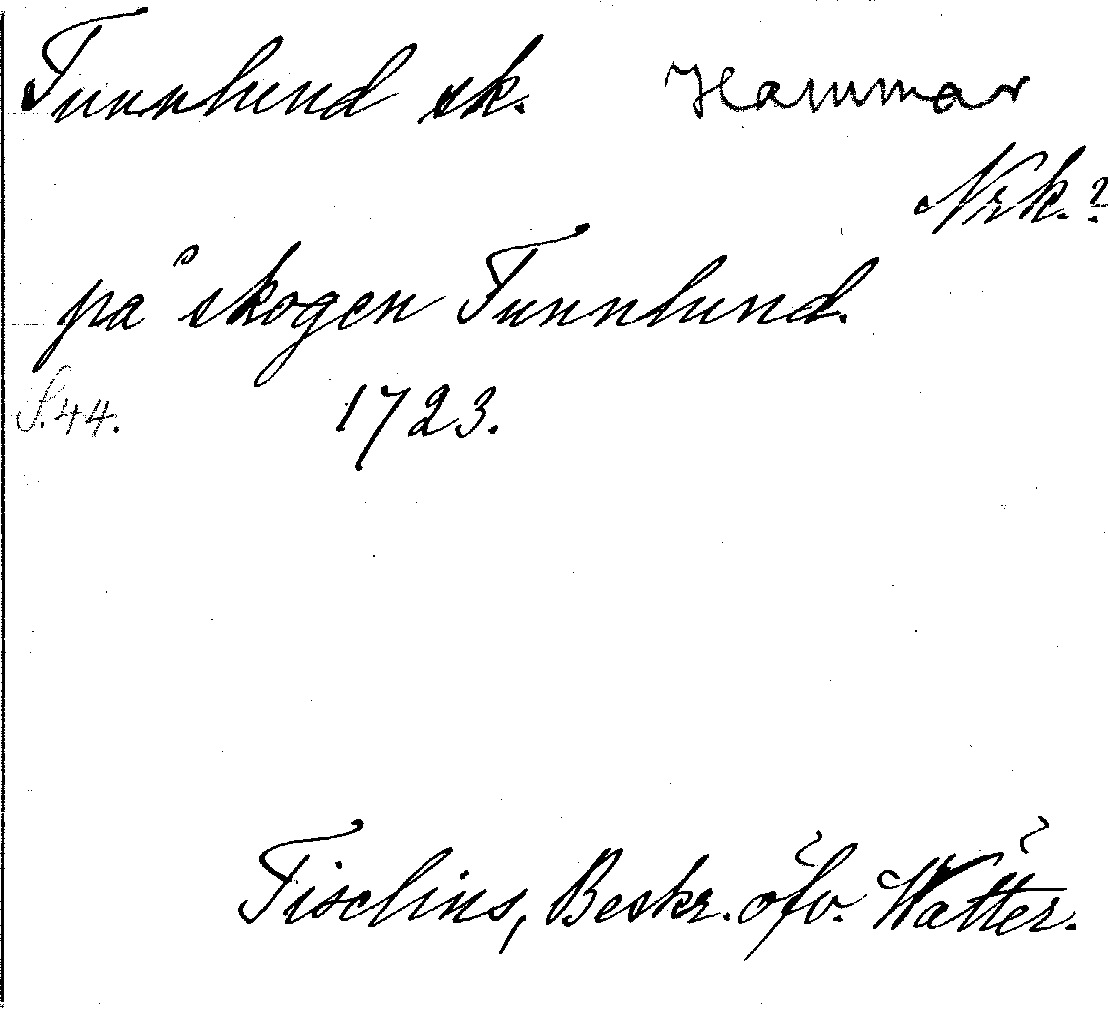 Tunnlund sk. Hammar
Nrk.?
på skogen Tunnlund.
S. 44. 1723.
Tiselius, Beskr. öfv. Wätter.